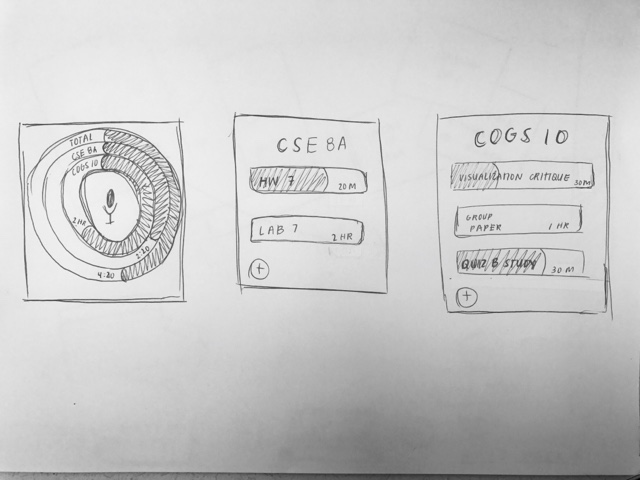 TOTAL
CSE 8A
COGS 10
2 HR
2:20
4:20
CSE 8A
HW 7
20 M
LAB 7
2 HR
+
COGS 10
VISUALIZATION CRITIQUE
30 M
GROUP
PAPER
1 HR
QUIZ B STUDY
30 M
+